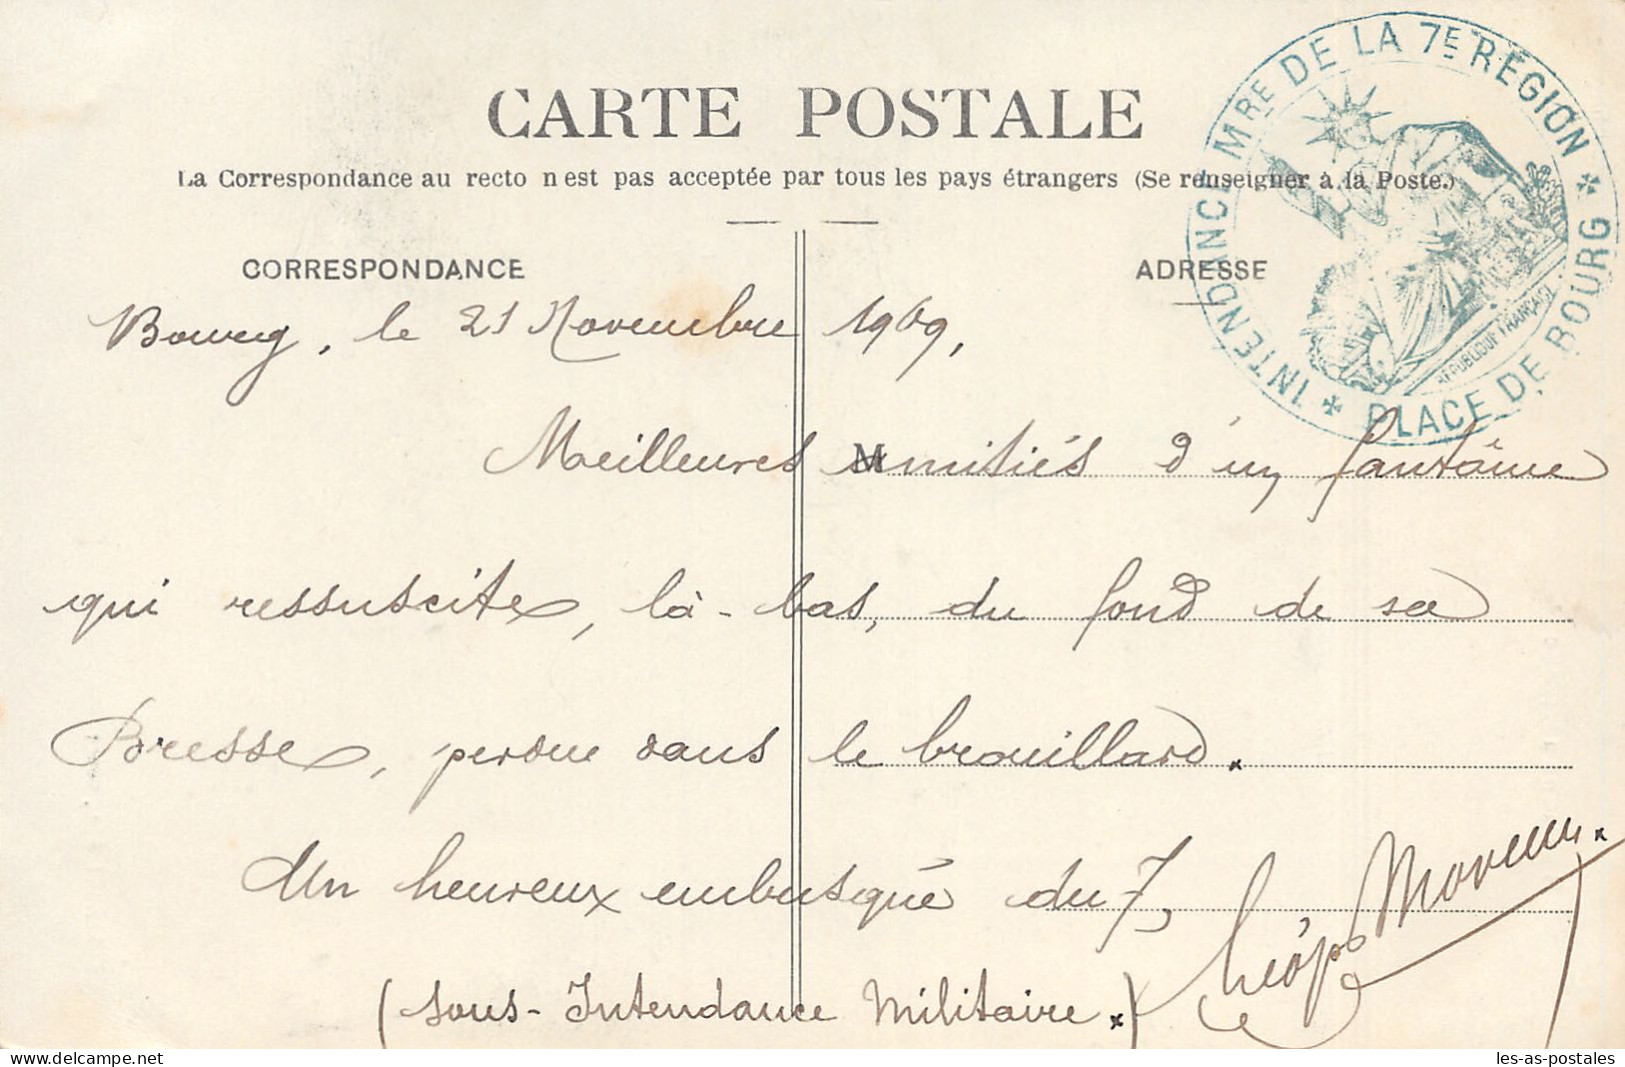 CARTE POSTALE
La Correspondance au recto n'est pas acceptée par tous les pays étrangers (Se renseigner à la Poste.)
CORRESPONDANCE
ADRESSE
INTENDANCE MRE DE LA 7E RÉGION
PLACE DE BOURG
RÉPUBLIQUE FRANÇAISE
Bourg, le 21 Novembre 1909,
M
Meilleures amitiés d'un fantôme
qui ressuscite, là-bas, du fond de sa
Bresse, perdue dans le brouillard.
Un heureux embusqué du 7,
(Sous-Intendance Militaire.)
les-as-postales